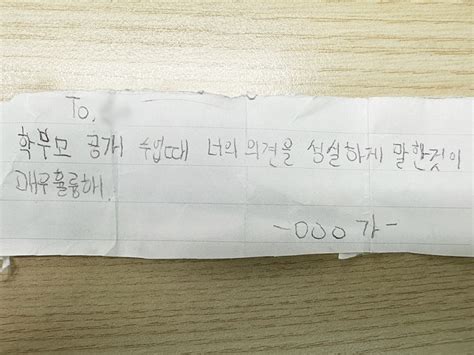 To.
학부모 공개 수업때 너의 의견을 성실하게 말한것이
매우훌륭해.
-OOO가-